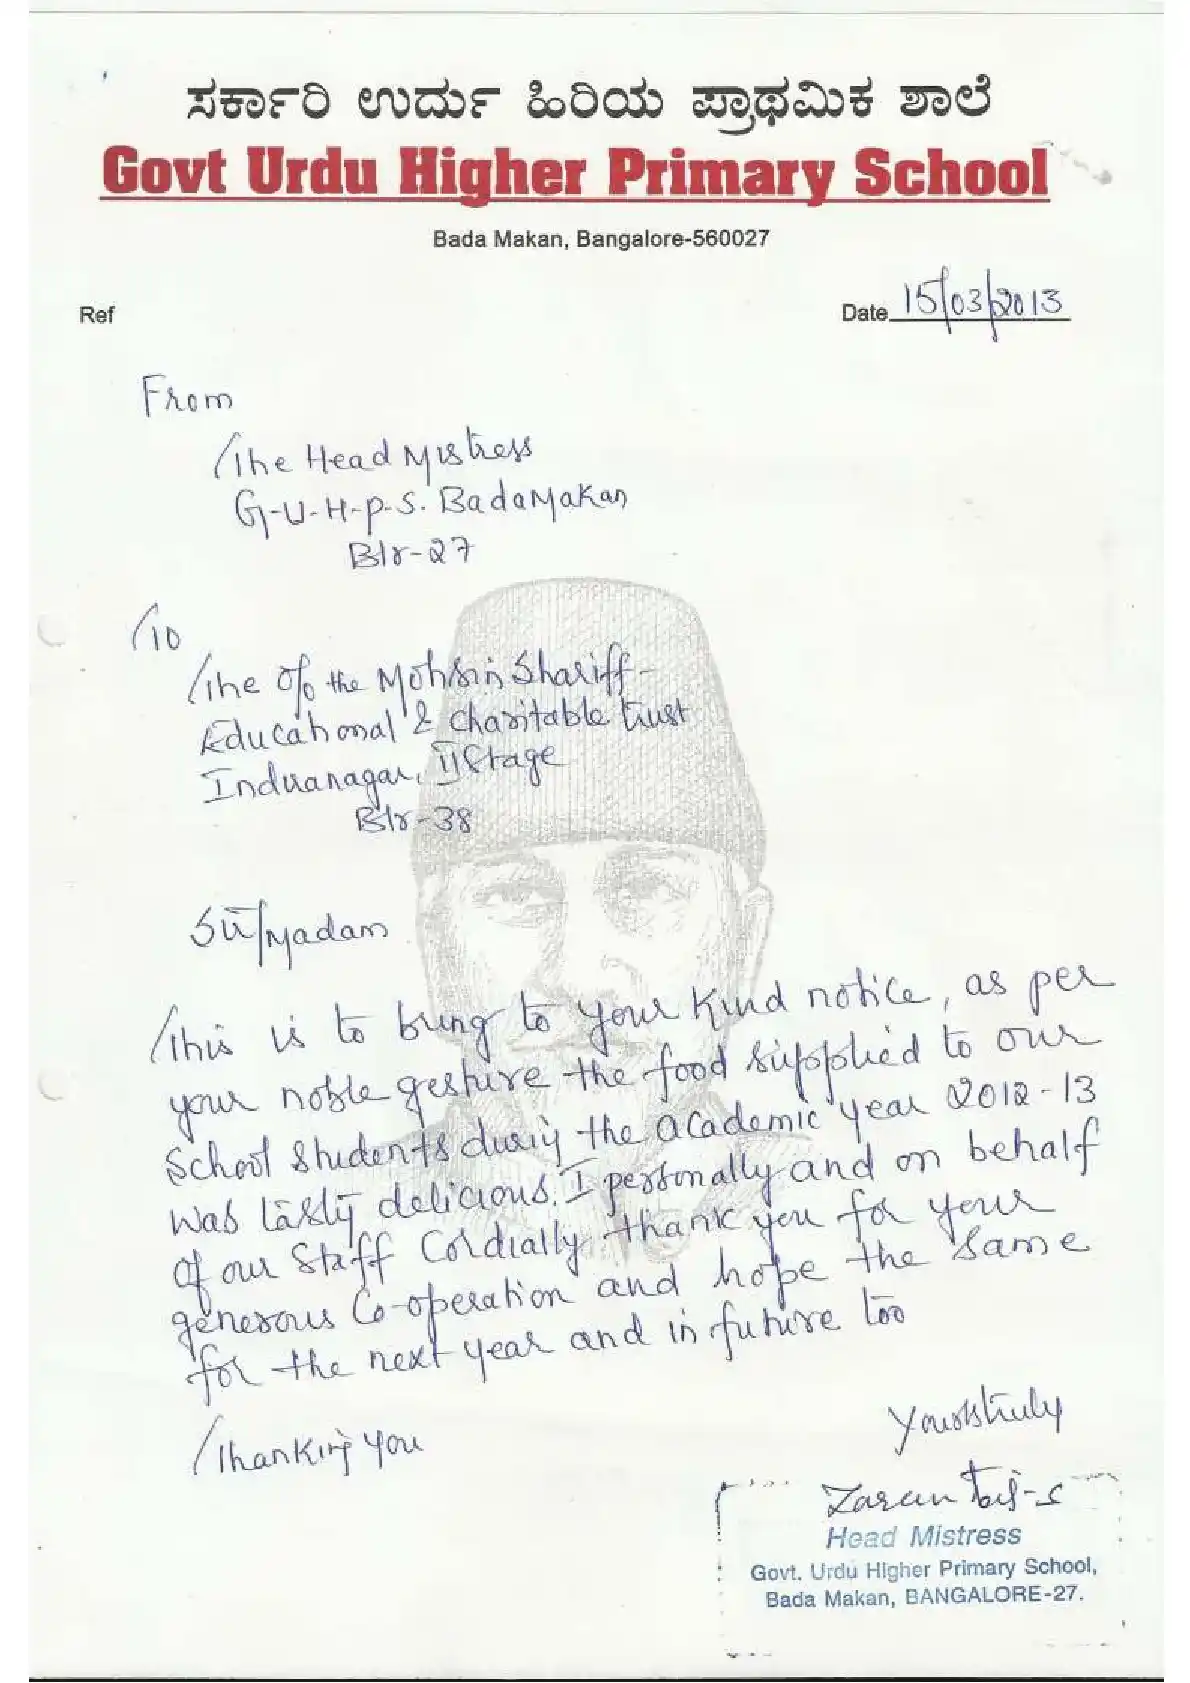 ಸರ್ಕಾರಿ ಉರ್ದು ಹಿರಿಯ ಪ್ರಾಥಮಿಕ ಶಾಲೆ
Govt Urdu Higher Primary School
Bada Makan, Bangalore-560027
Ref
Date 15/03/2013
From
The Head Mistress
G-U-H-P-S. BadaMakan
Blr-27
To
The O/o the Mohsin Shariff-
Educational & Charitable trust
Indiranagar, II Stage
Blr-38
Sir/Madam
This is to bring to your kind notice, as per
your noble gesture the food supplied to our
School students during the academic year 2012-13
was tasty delicious. I personally and on behalf
of our Staff Cordially thank you for your
generous Co-operation and hope the same
for the next year and in future too
Thanking you
Yours truly
Taj-S
Head Mistress
Govt. Urdu Higher Primary School,
Bada Makan, BANGALORE-27.